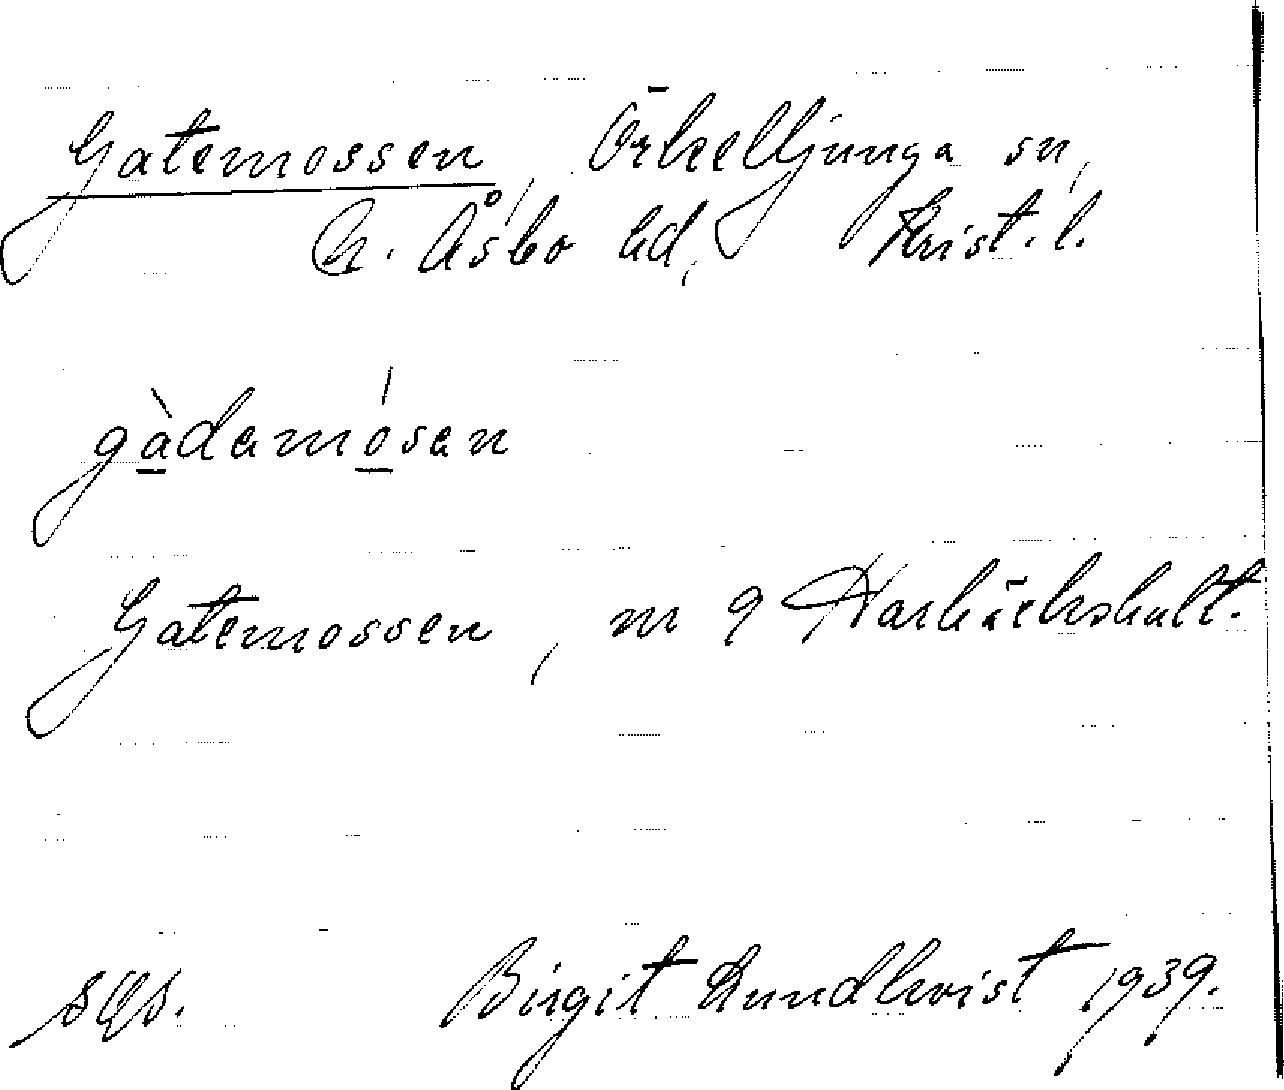 Gatemossen, Örkelljunga sn,
N. Åsbo hd, Krist. l.
gàdamósan
Gatemossen, m 9 Harbäckshult.
Birgit Lundkvist 1939.